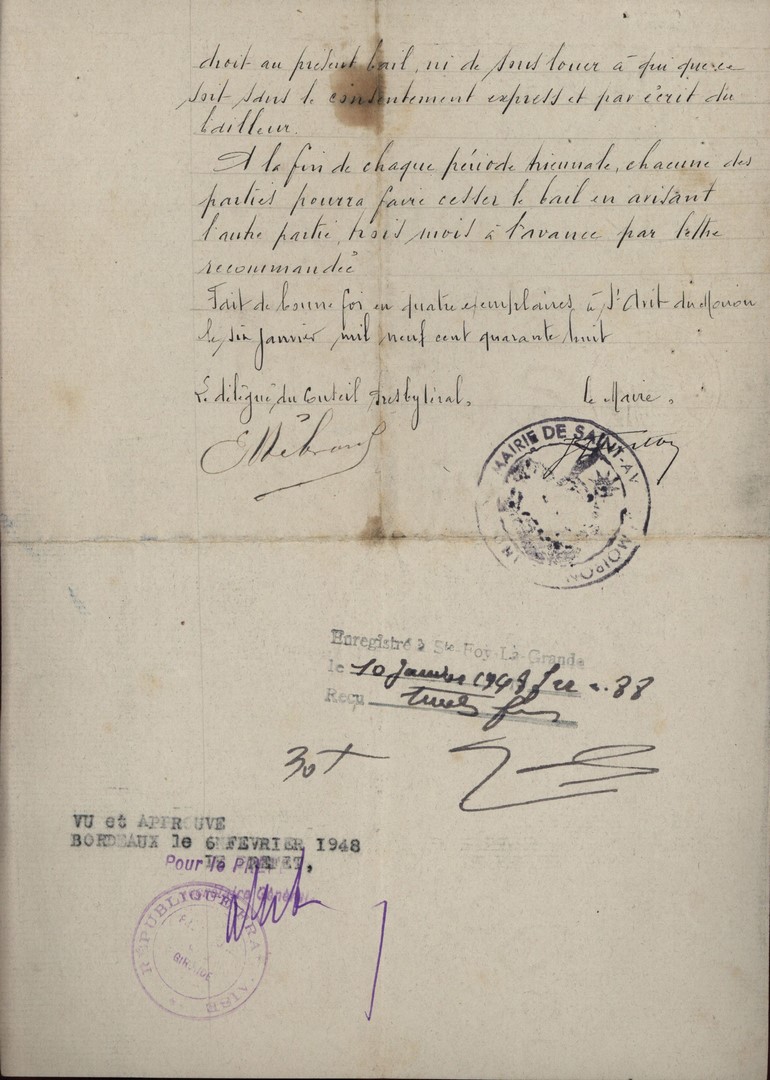 droit au présent bail, ni de sous louer à qui que ce
soit sans le consentement express et par écrit du
bailleur.
A la fin de chaque période triennale, chacune des
parties pourra faire cesser le bail en avisant
l'autre partie, trois mois à l'avance par lettre
recommandée
Fait de bonne foi en quatre exemplaires à St Avit du Moiron
le six Janvier mil neuf cent quarante huit
Le délégué du Conseil Presbytéral, le Maire,
MAIRIE DE SAINT-AV
MOIRON
Enregistré à Ste-Foy-La-Grande
le 10 Janvier 1948 88
Reçu
30
VU et APPROUVE
BORDEAUX le 6 FEVRIER 1948
LE PREFET,
Pour le
Général
REPUBLIQUE FRANCAISE
GIRONDE